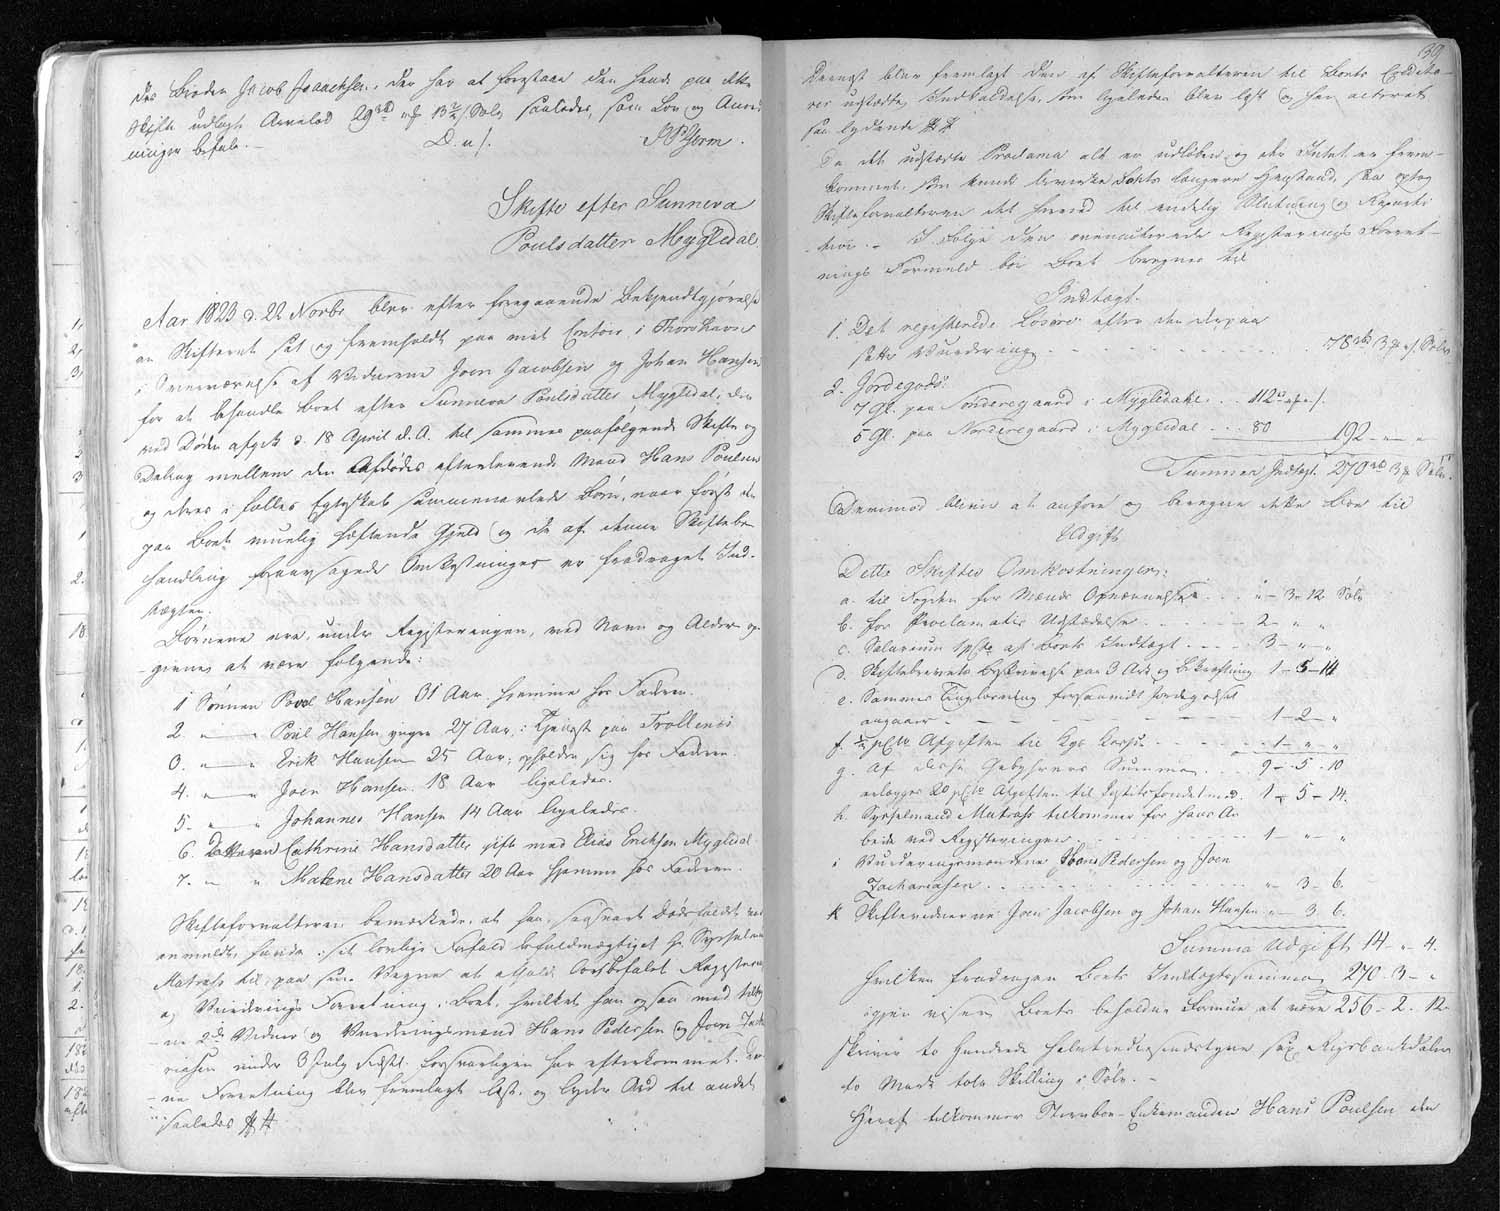 des Broder Jacob Isaachsen, der har at forestaae den hende paa dette
Skifte udlagte Arvelod 29 rbd 13 1/2 s. Sølv saaledes, som Lov og Anord
ninger befale.- D. u. s.
Skifte efter Sunneva
Poulsdatter Mygledal
Aar 1823 d. 22 Novbr blev efter foregaaende Bekjendtgjørelse
en Skifteret sat og fremholdt paa mit Contoir i Thorshavn
i Overværelse af Vidnerne Joen Jacobsen og Johan Hansen
for at behandle Boet efter Sunneva Poulsdatter Mygledal, der
ved Døden afgik d. 18 April d. A. til sammes paafølgende Skifte og
Deling mellem den Afdødes efterlevende Mand Hans Poulsen
og deres i fælles Egteskab sammenavlede Børn, naar først den
paa Boet muelig hæftende Gjeld og de af denne Skiftebe-
handling foraarsagede Omkostninger er fradraget Ind-
tægten.
Børnene ere, under Registeringen, ved Navn og Alder op-
givne at være følgende:
1 Sønnen Povel Hansen 31 Aar hjemme hos Faderen.
2. — " Poul Hansen yngre 27 Aar, i Tjeneste paa Trollenæs
3. — " Erik Hansen 25 Aar, opholder sig hos Faderen.
4. — " Joen Hansen 18 Aar ligeledes.
5. — " Johannes Hansen 14 Aar ligeledes.
6. Datteren Cathrine Hansdatter gift med Elias Erichsen Mygledal.
7. — " Malene Hansdatter 20 Aar hjemme hos Faderen.
Skifteforvalteren bemærkede, at han, saasnart Dødsfaldet var
anmeldt, havde i sit lovlige Forfald befuldmægtiget Hr. Sysselmand
Matras til, paa sine Vegne at afholde Registerings
og Vurderings Forretning i Boet, hvilket han ogsaa med til
ne 2de Vidner og Vurderingsmænd Hans Pedersen og Joen Zacha
riasen under 3 July har efterkommet. Den
ne Forretning blev fremlagt læst, og lyder Ord til andet
saaledes ##
39
Dernæst blev fremlagt den af Skifteforvalteren til Boets Credito-
rer udstædte Indkaldelse, som ligeledes blev læst og her acteret
saa lydende ##
Da det udstædte Proclama alt er udløben og der Intet er frem-
kommet, som kunde bevirke Boets længere Henstand, saa optog
Skifteforvalteren det herved til endelig Slutning og Reparti
tion.- I Følge den Registerings Forret-
nings Formeld bør Boet beregnes til
Indtægt.
1. Det registerede Løsøre efter den derpaa
satte Vurdering - - - - - 78 rbd 3 # s. Sølv
2. Jordegods:
7 Gl. paa Sønderegaard i Mygledahl . . 112 " " s.
5 Gl. paa Norderegaard i Mygledal . . . 80 192 - " - "
Summa Indtægt 270 rbd 3 # Sølv.
Derimod bliver at anføre og beregne dette Boe til
Udgift
Dette Skiftes Omkostninger:
a. til Fogden for Mænds Opnævnelse . . . " - 3 - 12 Sølv
b. for Proclamatis Udstædelse . . . . 2 - " "
c. Salarium 1 pCto af Boets Indtægt - - - 3 - " - "
d. Skiftebrevets Beskrivelse paa 3 Ark og Bekræftning 1 - 5 - 14
e. Sammes Tinglæsning forsaavidt Jordegodset
angaaer - - - - - 1 - 2 - "
f. 1/2 pCto Afgiften til Kgs Kasse - - - 1 - " "
g. Af disse Gebyhrers Summa . . . 9 - 5 - 10
erlægges 20 pCto Afgiften til Justitsfondet med. 1 - 5 - 14.
h. Sysselmand Matras tilkommer for hans Ar
beide ved Registeringen - - - 1 - " - "
i Vurderingsmændene Hans Pedersen og Joen
Zachariasen . . . . . " - 3 - 6.
k Skiftevidnerne Joen Jacobsen og Johan Hansen " - 3 6.
Summa Udgift 14 - " 4.
hvilken fradragen Boets Indtægtssumma 270 - 3 - "
igjen viser Boets beholdne Formue at være 256 - 2 - 12
skriver to Hundrede halvtrediesindstyve sex Rigsbankdaler
to Mark tolv Skilling i Sølv.-
Heraf tilkommer Sterbboe-Enkemanden Hans Poulsen den